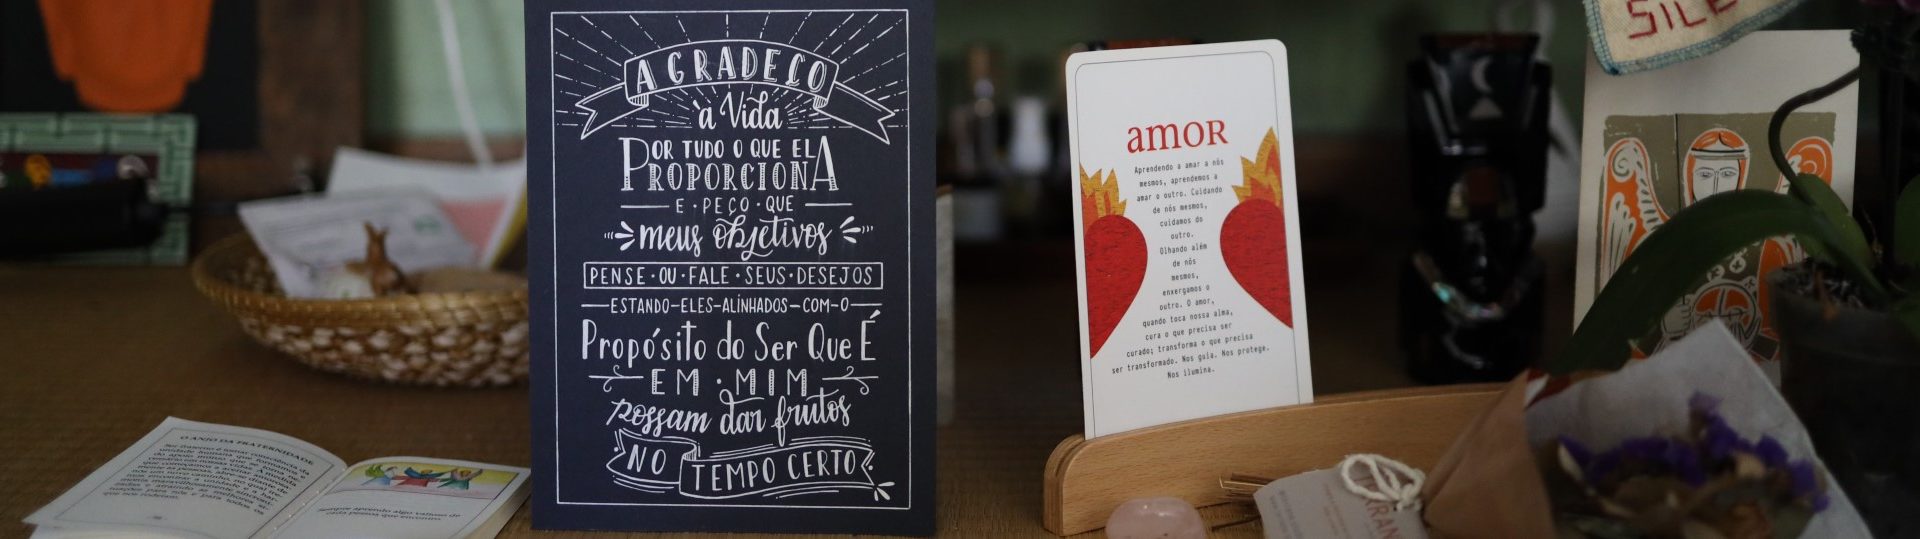 AGRADEÇO
à Vida
POR TUDO O QUE ELA
PROPORCIONA
E PEÇO QUE
meus objetivos
PENSE · OU · FALE · SEUS · DESEJOS
ESTANDO-ELES-ALINHADOS-COM-O
Propósito do Ser Que É
EM · MIM
possam dar frutos
NO TEMPO CERTO
amor
Aprendendo a amar a nós
mesmos, aprendemos a
amar o outro. Cuidando
de nós mesmos,
cuidamos do
outro.
Olhando além
de nós
mesmos,
enxergamos o
outro. O amor,
quando toca nossa alma,
cura o que precisa ser
curado; transforma o que precisa
ser transformado. Nos guia. Nos protege.
Nos ilumina.
O ANJO DA FRATERNIDADE
Sempre aprendo algo valioso de
cada pessoa que encontro
SILE